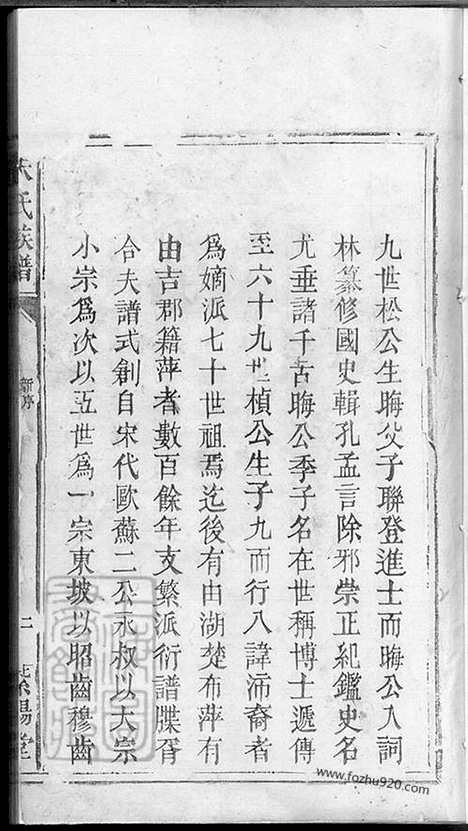 九世松公生晦父子聯登進士而晦公入詞
林纂修國史輯孔孟言除邪崇正紀鑑史名
尤垂諸千古晦公季子名在世稱博士遞傳
至六十九世楨公生子九而行八諱沛裔者
為嫡派七十世祖焉迄後有由湖楚布萍有
由吉郡籍萍者數百餘年支繁派衍譜牒胥
合夫譜式創自宋代歐蘇二公永叔以大宗
小宗為次以五世為一宗東坡以昭齒穆齒
氏族譜
新序
二
紫陽堂
www.fozhu920.com